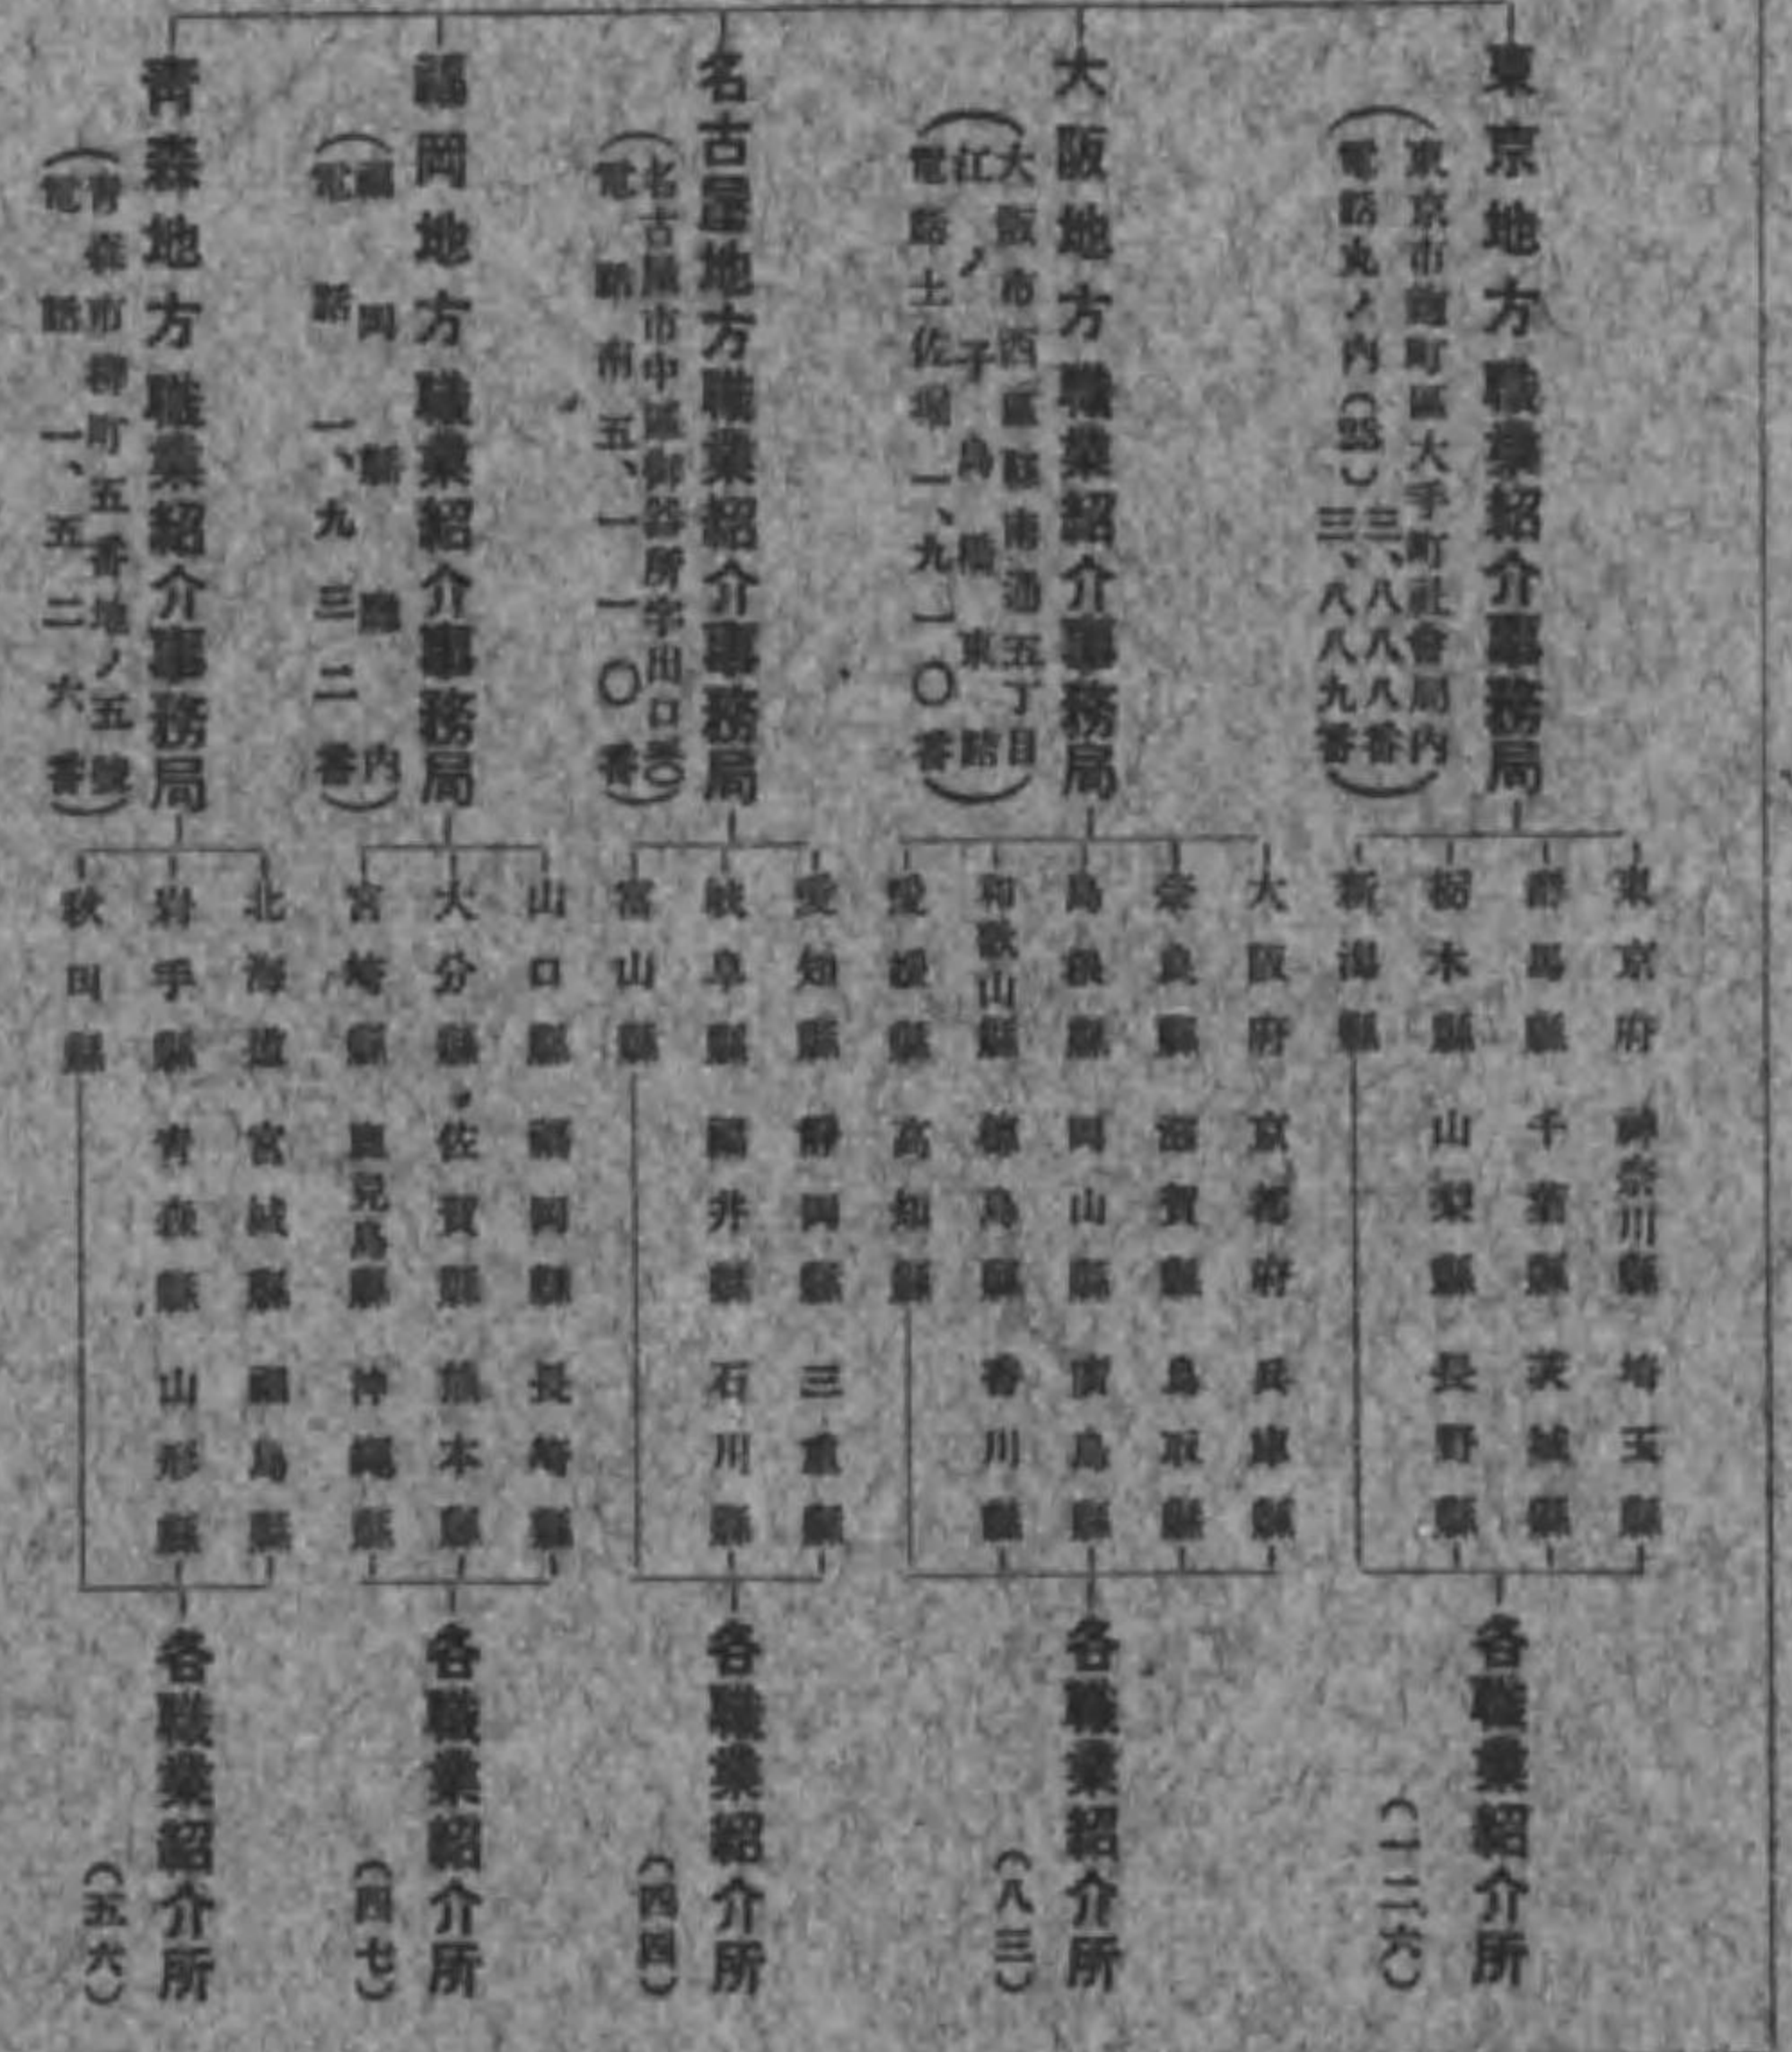 東京地方職業紹介事務局
東京市麹町區大手町社會局内
電話丸ノ内(23)三、八八八番
三、八八九番
東京府 神奈川縣 埼玉縣
群馬縣 千葉縣 茨城縣
栃木縣 山梨縣 長野縣
新潟縣
各職業紹介所
(一二六)
大阪地方職業紹介事務局
大阪市西區 南通五丁目
江ノ子島橋東詰
電話土佐堀一、九一〇番
大阪府 京都府 兵庫縣
奈良縣 滋賀縣 鳥取縣
島根縣 岡山縣 廣島縣
和歌山縣 德島縣 香川縣
愛媛縣 高知縣
各職業紹介所
(八三)
名古屋地方職業紹介事務局
名古屋市中區御器所字田口
電話南五、一一〇番
愛知縣 靜岡縣 三重縣
岐阜縣 福井縣 石川縣
富山縣
各職業紹介所
(四四)
福岡地方職業紹介事務局
福岡縣廳内
電話一、九三二番
山口縣 福岡縣 長崎縣
大分縣 佐賀縣 熊本縣
宮崎縣 鹿兒島縣 沖繩縣
各職業紹介所
(四七)
青森地方職業紹介事務局
青森市柳町五番地ノ五號
電話一、五二六番
北海道 宮城縣 福島縣
岩手縣 青森縣 山形縣
秋田縣
各職業紹介所
(五六)